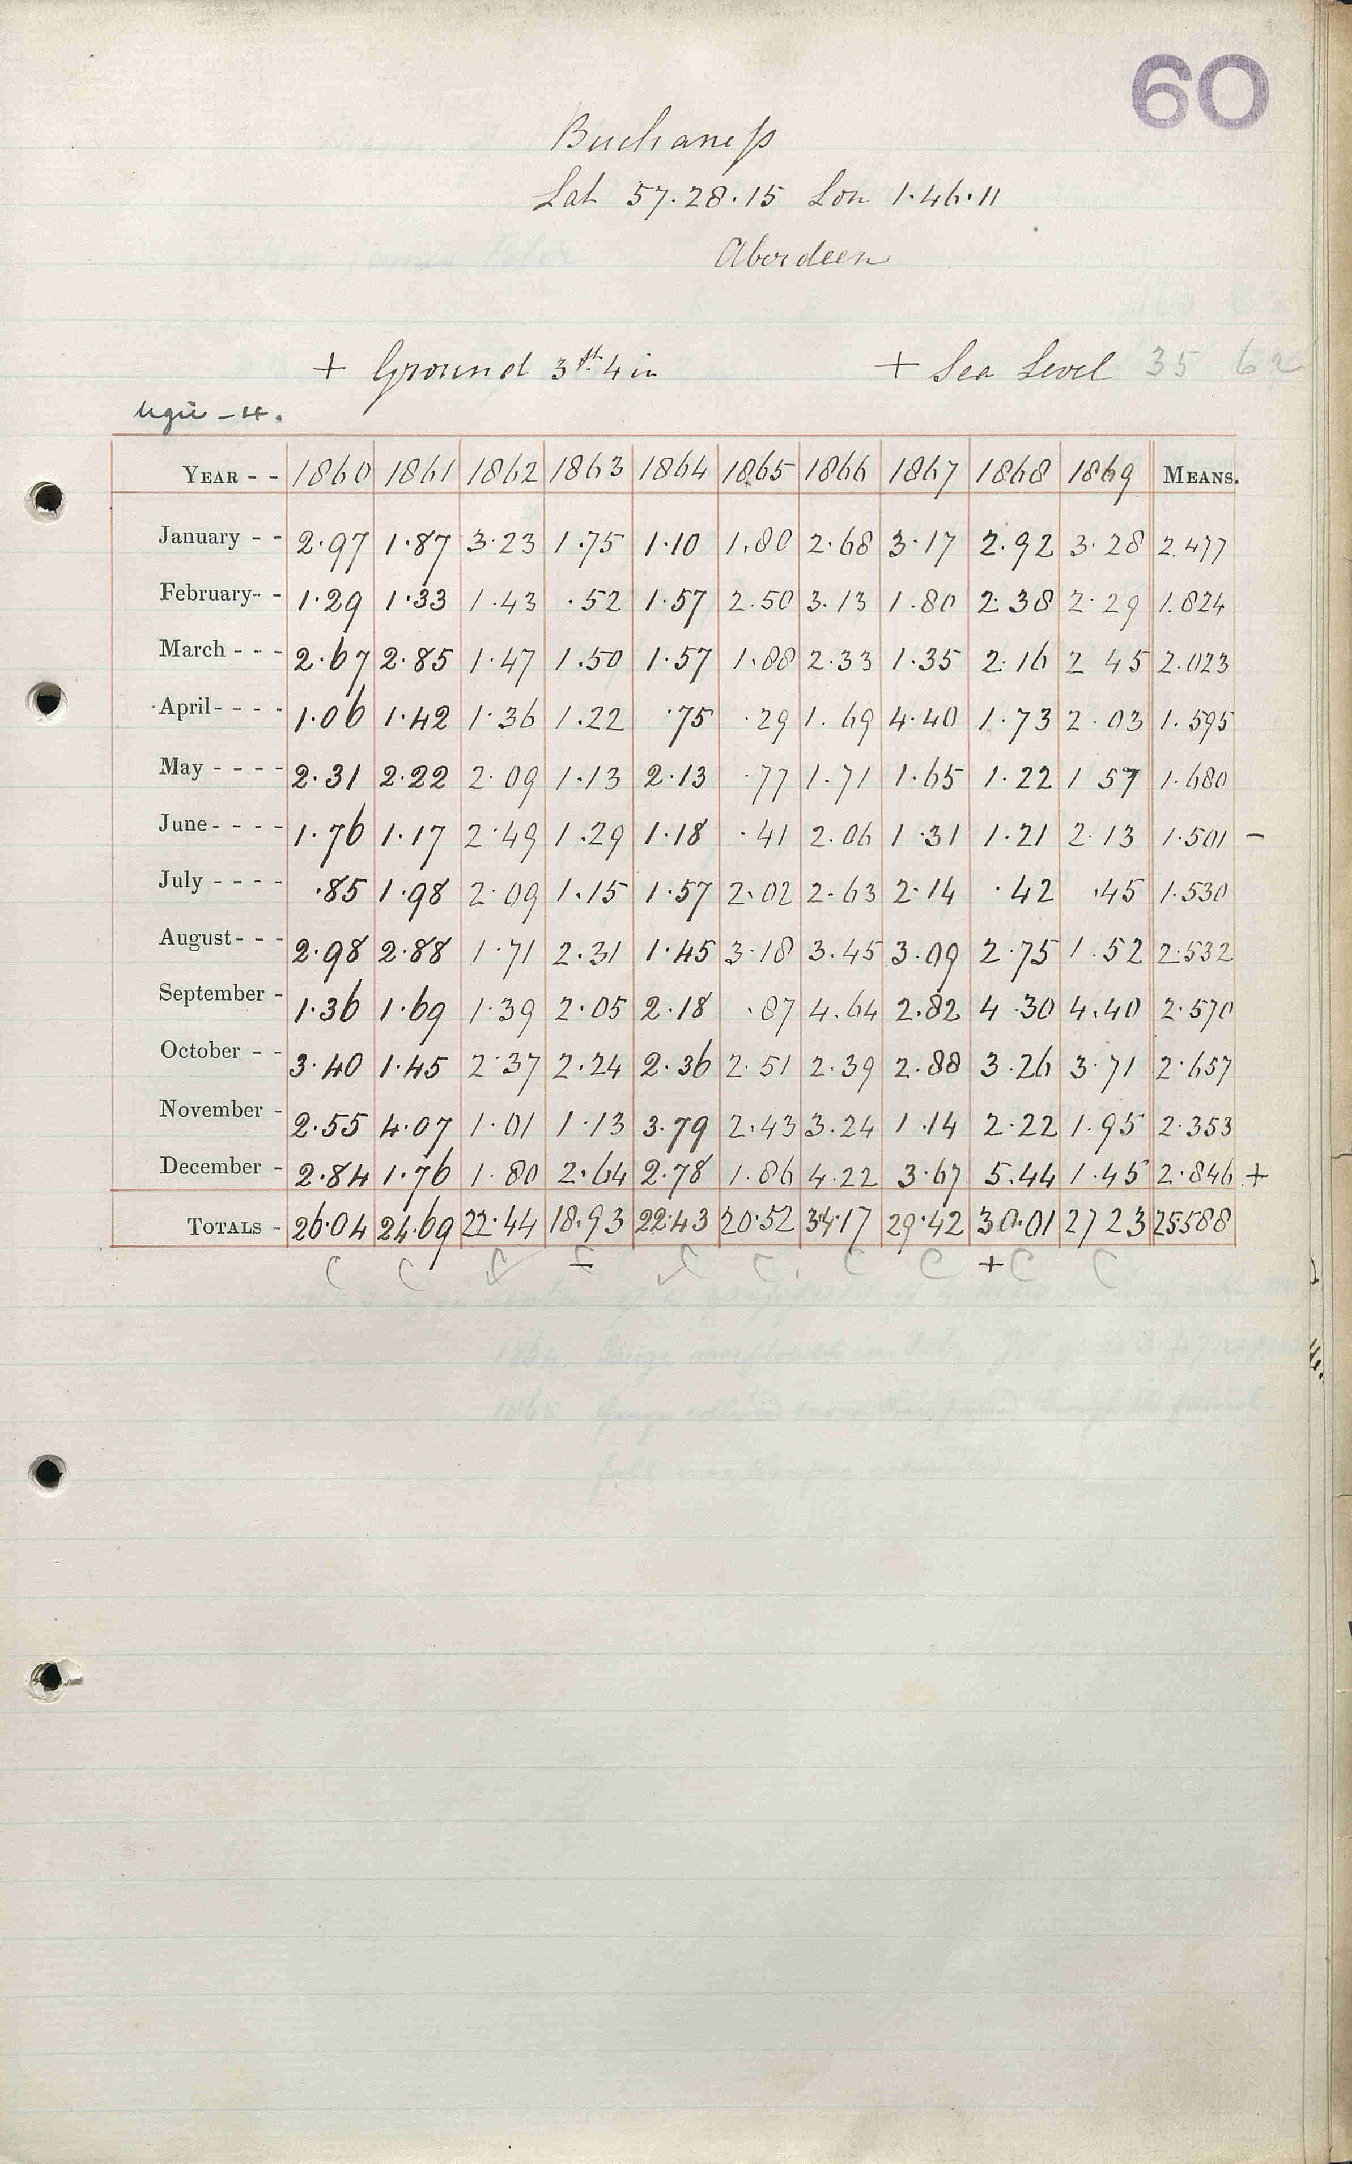 60
Buchaness
Lat 57.28.15 Lon 1.46.11
Aberdeen
+ Ground 3 ft. 4 in + Sea Level 35 62
Ugie - 4.
YEAR - - 1860 1861 1862 1863 1864 1865 1866 1867 1868 1869 MEANS.
January - - 2.97 1.87 3.23 1.75 1.10 1.80 2.68 3.17 2.92 3.28 2.477
February - - 1.29 1.33 1.43 .52 1.57 2.50 3.13 1.80 2.38 2.29 1.824
March - - - 2.67 2.85 1.47 1.50 1.57 1.88 2.33 1.35 2.16 2 45 2.023
April - - - - 1.06 1.42 1.36 1.22 .75 .29 1.69 4.40 1.73 2.03 1.595
May - - - - 2.31 2.22 2.09 1.13 2.13 .77 1.71 1.65 1.22 1 57 1.680
June - - - - 1.76 1.17 2.49 1.29 1.18 .41 2.06 1.31 1.21 2.13 1.501 -
July - - - - .85 1.98 2.09 1.15 1.57 2.02 2.63 2.14 .42 .45 1.530
August - - - 2.98 2.88 1.71 2.31 1.45 3.18 3.45 3.09 2.75 1.52 2.532
September - 1.36 1.69 1.39 2.05 2.18 .87 4.64 2.82 4.30 4.40 2.570
October - - 3.40 1.45 2.37 2.24 2.36 2.51 2.39 2.88 3.26 3.71 2.657
November - 2.55 4.07 1.01 1.13 3.79 2.43 3.24 1.14 2.22 1.95 2.353
December - 2.84 1.76 1.80 2.64 2.78 1.86 4.22 3.67 5.44 1.45 2.846 +
TOTALS - 26.04 24.69 22.44 18.93 22.43 20.52 34.17 29.42 30.01 27 23 25588
C C C - C C C C + C C